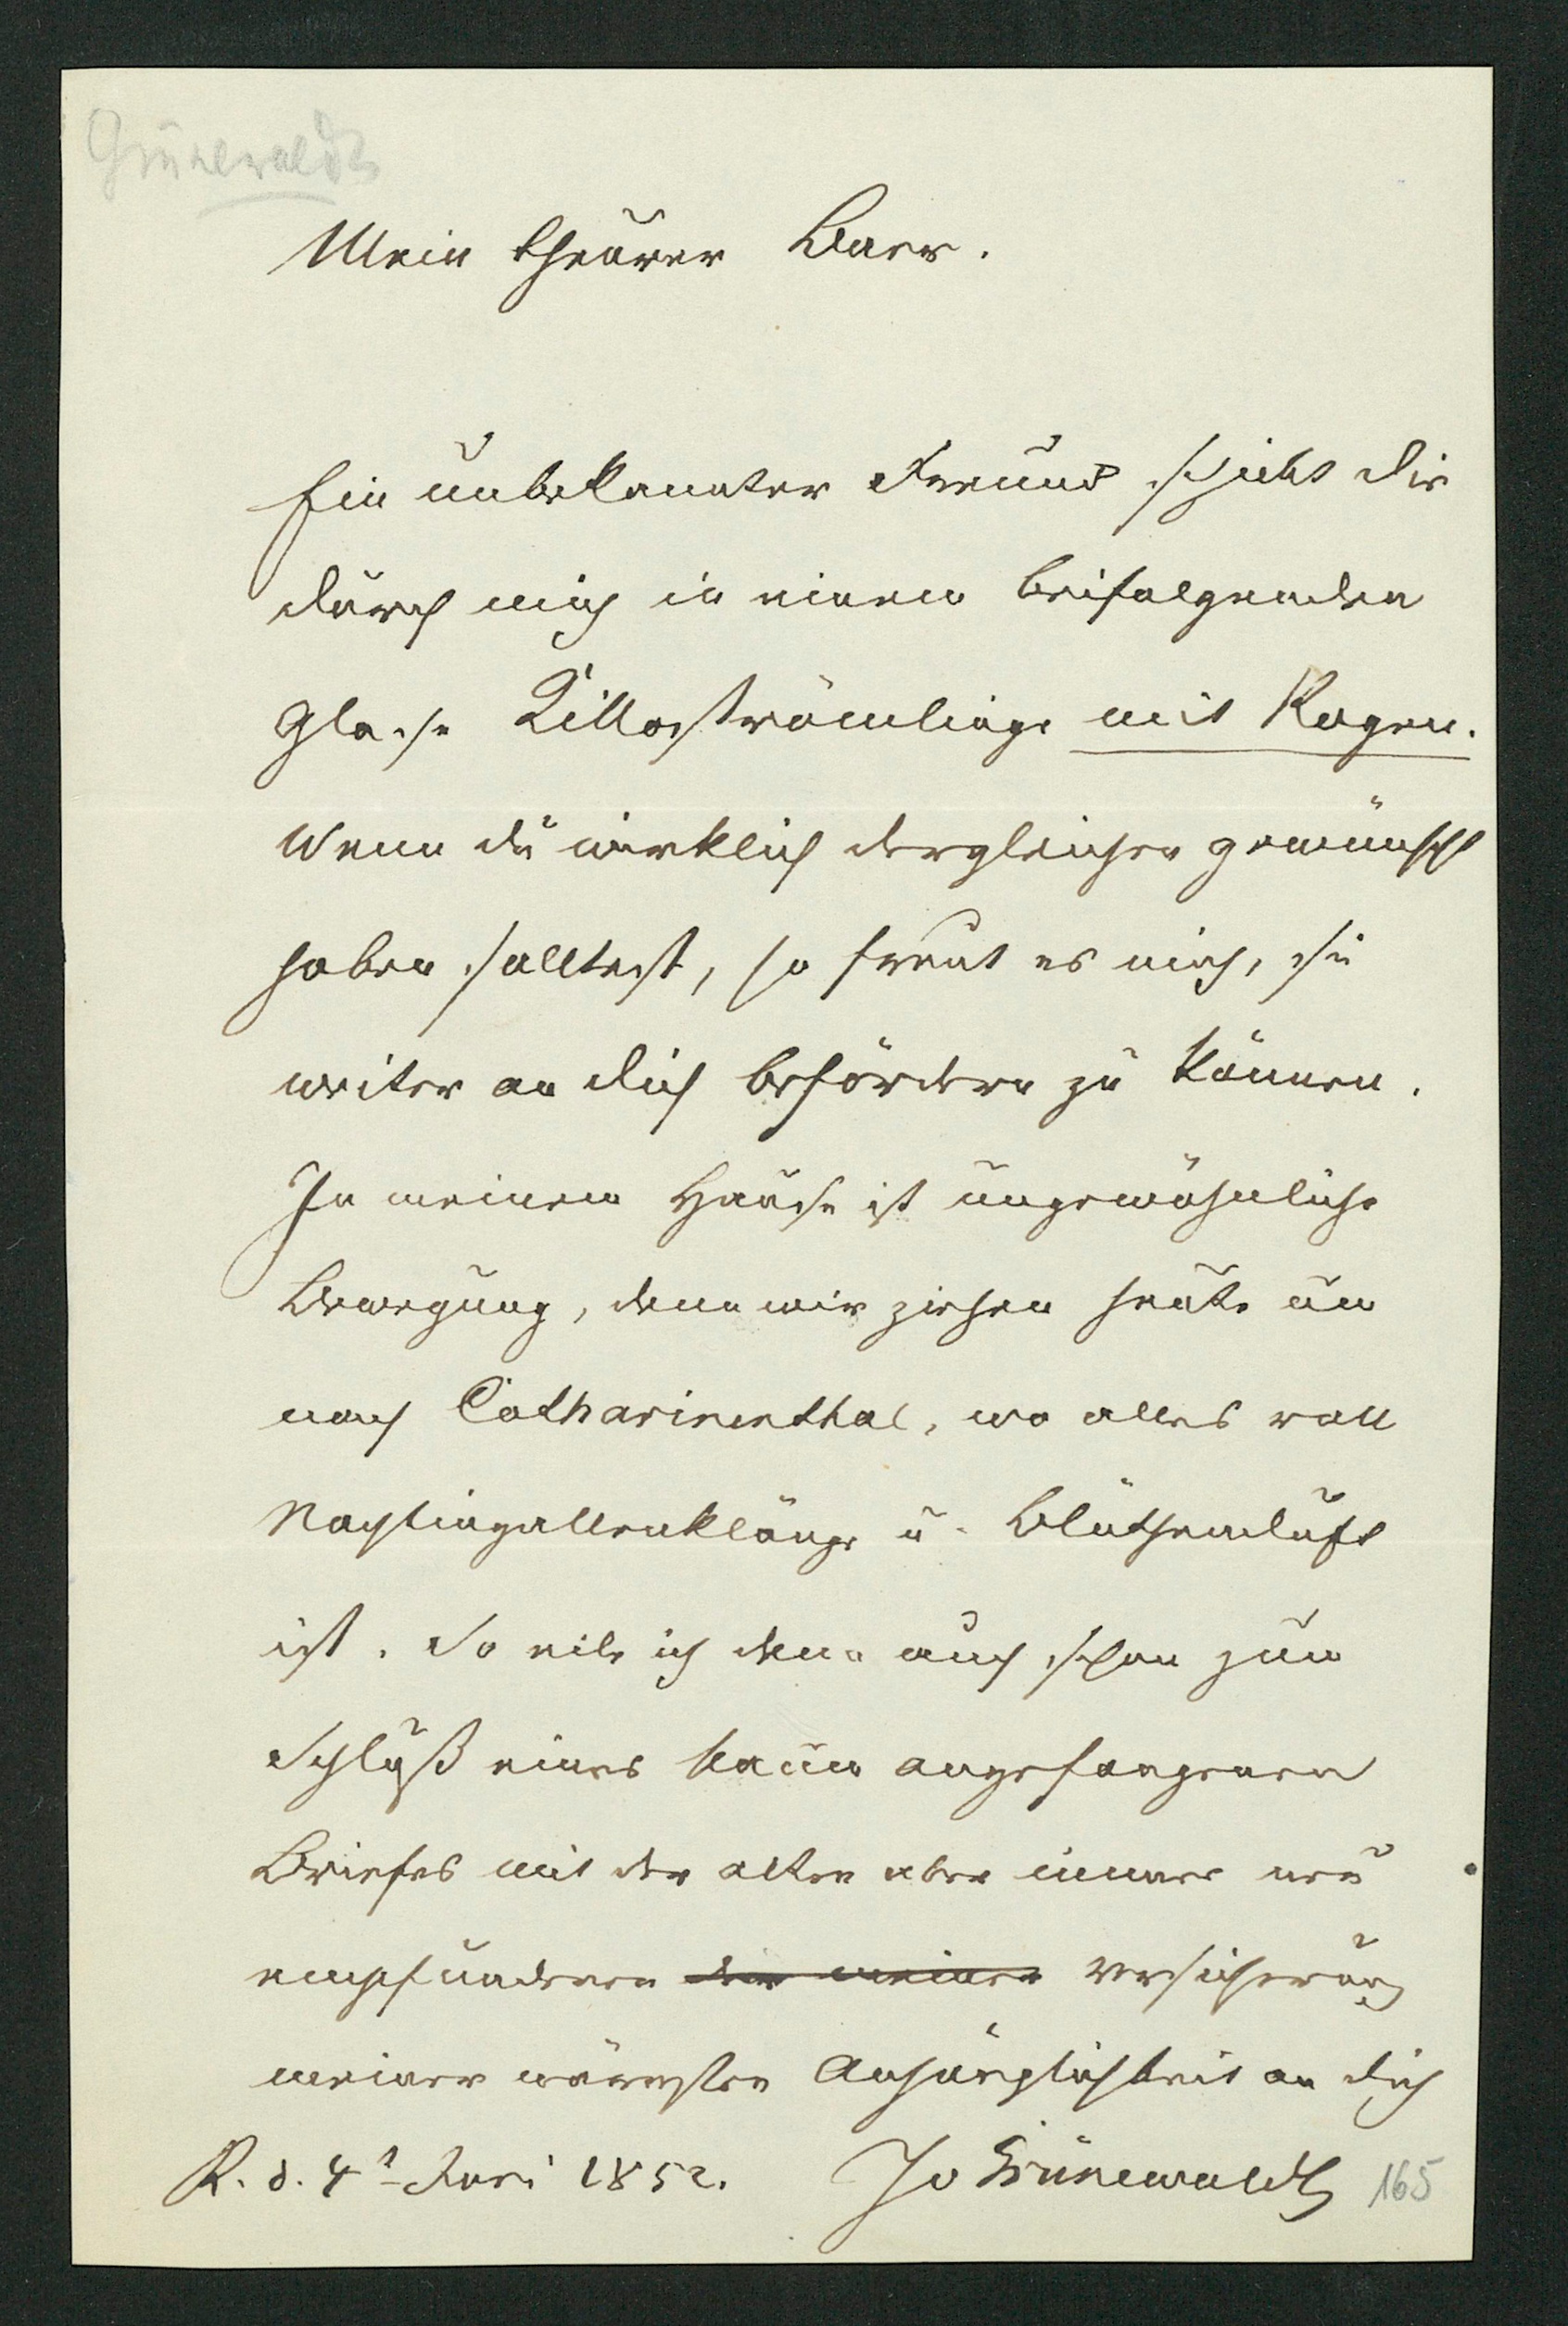 Grünewaldt
Mein theurer Baer.
Ein unbekannter Freund schickt dir
durch mich in einem beifolgenden
Glase Killoströmlinge mit Rogen.
Wenn du wirklich dergleichen gewünscht
haben solltest, so freut es mich, sie
weiter an dich befördern zu können.
In meinem Hause ist ungewöhnliche
Bewegung, denn wir ziehen heute um
nach Catharinenthal, wo alles voll
Nachtingallenklänge u. Blüthenduft
ist. So eile ich denn auch schon zum
Schluß eines kaum angefangenen
Briefes mit der alten aber immer neu
empfundenen der meiner Versicherung
meiner wärmsten Anhänglichkeit an dich
R. d. 4t Juni 1852. Jv Grünewaldt 165